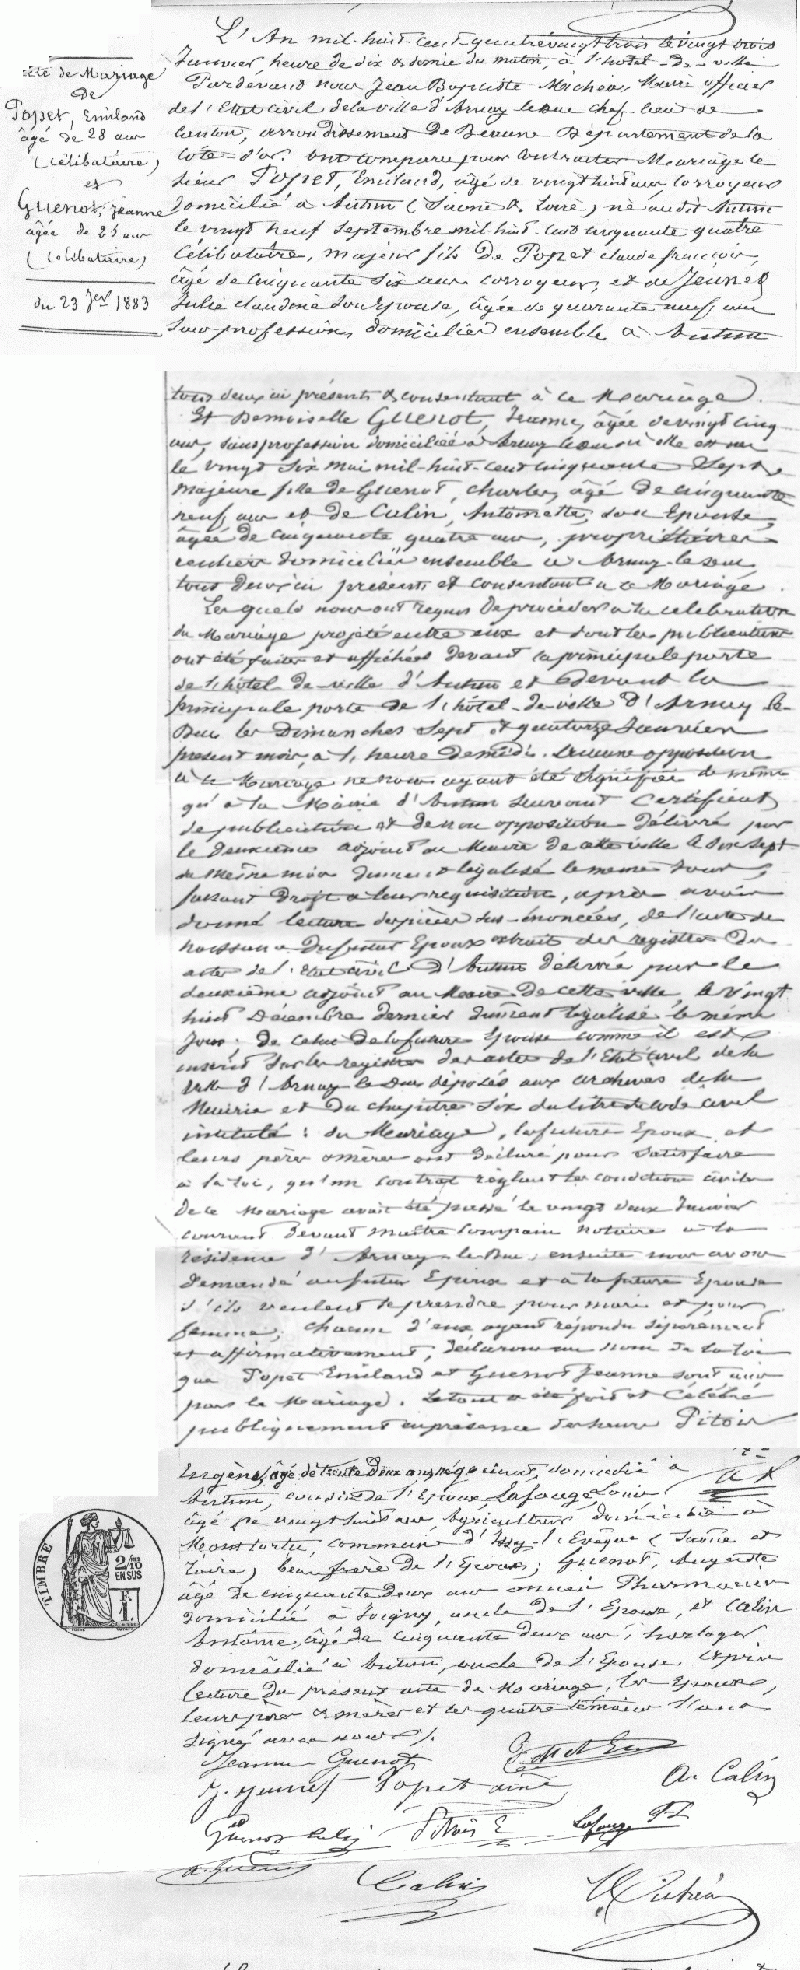 L'An mil huit cent quatre vingt trois le vingt trois
Janvier heure de dix du matin, à l'hôtel de ville
Pardevant nous Jean Baptiste Maire officier
de l'Etat civil de la ville d'Arnay le duc chef lieu de
canton, arrondissement de Beaune Département de la
Côte d'or. ont comparu pour contracter Mariage le
sieur Popet, Emiland, âgé de vingt huit ans, corroyeur
domicilié à Autun (Saone & Loire) né audit Autun
le vingt neuf Septembre mil huit cent cinquante quatre
Célibataire, majeur fils de Popet claude françois,
âgé de cinquante six ans corroyeur, et de Jeunet
Julie claudine son Epouse, âgée de quarante neuf ans
sans profession, domiciliés ensemble à Autun
acte de Mariage
de
Popet, Emiland
âgé de 28 ans
(célibataire)
et
Guenot, Jeanne
âgée de 25 ans
(célibataire)
du 23 Jer 1883
tous deux ici présents & consentant à ce Mariage.
Et Demoiselle Guenot, Jeanne, âgée de vingt cinq
ans, sans profession domiciliée à Arnay le duc où elle est née
le vingt six mai mil huit cent cinquante Sept,
majeure fille de Guenot, Charles, âgé de cinquante
neuf ans et de Calin, Antoinette, son Epouse,
âgée de cinquante quatre ans, propriétaires
rentiers domiciliés ensemble à Arnay-le-duc
tous deux ici présents et consentant à ce Mariage.
Lesquels nous ont requis de procéder à la célébration
du Mariage projeté entre eux et dont les publications
ont été faites et affichées devant la principale porte
de l'hôtel de ville d'Autun et devant la
principale porte de l'hôtel de ville d'Arnay le
Duc les Dimanches Sept & quatorze Janvier
présent mois, à l'heure de midi. Aucune opposition
à ce Mariage ne nous ayant été signifiée de même
qu'à la Mairie d'Autun suivant Certificat
de publication et de non opposition délivré par
le deuxième adjoint au Maire de cette ville le dix sept
du même mois dument légalisé le même jour,
faisant droit à leur requisition, après avoir
donné lecture des pièces sus-énoncées, de l'acte de
naissance du futur Epoux extrait des registres des
actes de l'Etat civil d'Autun délivré par le
deuxième adjoint au Maire de cette ville, le vingt
huit Décembre dernier dument légalisé le même
jour; de celui de la future Epouse comme il est
inscrit sur les registres des actes de l'Etat civil de la
ville d'Arnay le Duc déposés aux archives de la
Mairie et du chapitre six du titre du code civil
intitulé: du Mariage, les futurs Epoux et
leurs pères & mères ont déclaré pour satisfaire
à la loi, qu'un contrat réglant les conditions civiles
de ce Mariage avait été passé le vingt deux Janvier
courant devant maître Compain notaire à la
résidence d'Arnay-le-Duc; ensuite nous avons
demandé au futur Epoux et à la future Epouse
s'ils veulent se prendre pour mari et pour
femme, chacun d'eux ayant répondu séparément
et affirmativement, déclarons au nom de la loi
que Popet Emiland et Guenot Jeanne sont unis
par le Mariage. Le tout a été fait et Célébré
publiquement en présence des sieurs Pitois
Eugène, âgé de trente deux ans, négociant, domicilié à
Autun, cousin de l'Epoux, Lafouge, Louis
âgé de vingt huit ans, Agriculteur domicilié à
Montartu, commune d'Issy-l'Evêque (Saône et
Loire) beau frère de l'Epoux; Guenot, Auguste
âgé de cinquante deux ans ancien Pharmacien
domicilié à Joigny, oncle de l'Epouse, et Calin
Antoine, âgé de cinquante deux ans, horloger
domicilié à Autun, oncle de l'Epouse. Après
lecture du présent acte de Mariage, les Epoux,
leurs pères & mères et les quatre témoins l'ont
signé avec nous.
TIMBRE
2/10
EN SUS
F.
1.
Jeanne Guenot
J. Jeunet Popet ainé
A. Calin
Guenot Calin Pitois E Lafouge
Calin